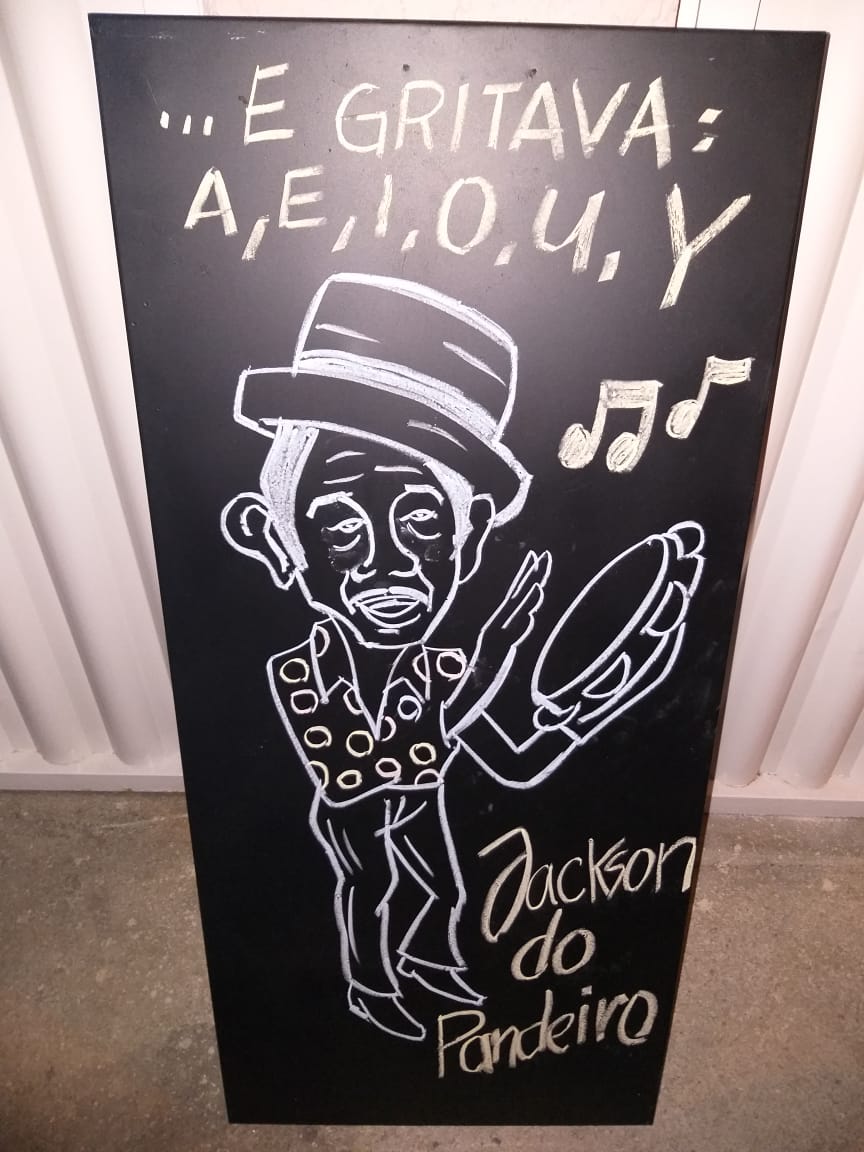 ... E GRITAVA:
A, E, I, O, U, Y
Jackson
do
Pandeiro